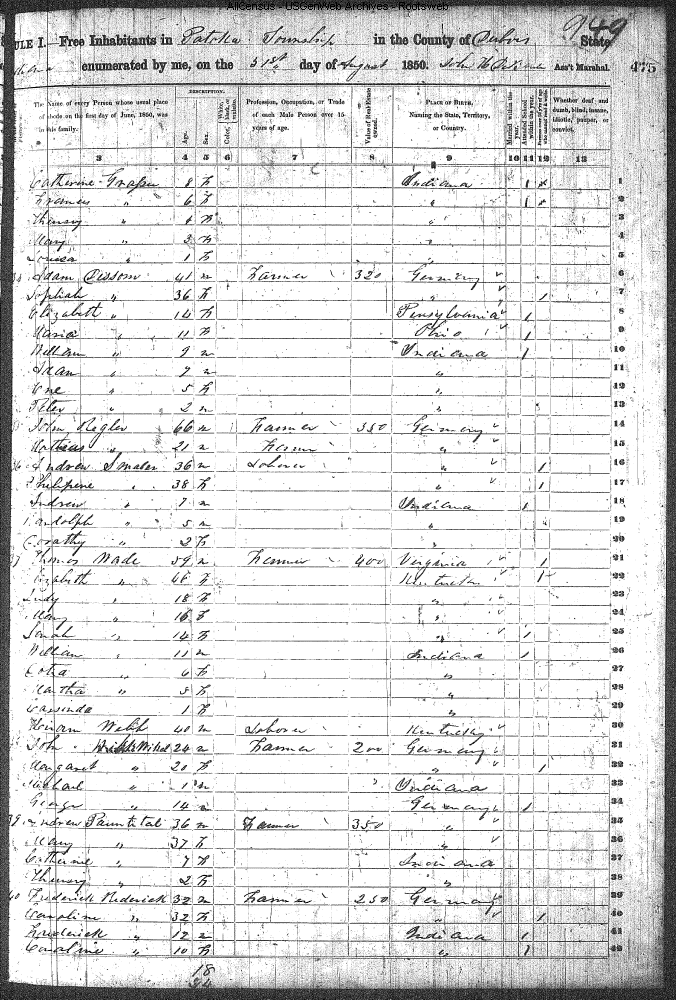 AllCensus - USGenWeb Archives - Rootsweb
949
DULE I. Free Inhabitants in Patoka Township in the County of Dubois State
enumerated by me, on the 31st day of August 1850. John Ass't Marshal. 475
The Name of every Person whose usual place of abode on the first day of June, 1850, was in this family.
DESCRIPTION.
Age. Sex. White, black, or mulatto. Color,
Profession, Occupation, or Trade of each Male Person over 15 years of age.
Value of Real Estate owned.
PLACE OF BIRTH. Naming the State, Territory, or Country.
Married within the year.
Attended School within the year.
Whether deaf and dumb, blind, insane, idiotic, pauper, or convict.
3 4 5 6 7 8 9 10 11 12 13
Catherine 8 F Indiana 1 1
Frances " 6 F " 1 2
" 4 F " 3
Mary " 3 F " 4
Louisa " 1 F " 5
Adam Cissom 41 m Farmer 320 Germany 6
Sophiah " 36 F " 1 7
Elizabeth " 14 F Pensylvania 1 8
Maria " 11 F Ohio 1 9
William " 9 m Indiana 1 10
Adam " 7 m " 11
" 5 F 12
Peter " 2 m 13
John Regler 66 m Farmer 350 Germany 14
Mathias " 21 m Farmer " 15
Andrew 36 m Laborer " 1 16
Philipene " 38 F " 1 17
Andrew " 7 m Indiana 1 18
Randolph " 5 m " 19
Dorathy " 2 F 20
Thomas Wade 59 m Farmer 400 Virginia 1 21
Elizabeth " 48 F Kentucky 1 22
Judy " 18 F " 23
Mary " 16 F " 24
Sarah " 14 F " 1 25
William " 11 m Indiana 1 26
" 6 F " 27
Martha " 5 F " 28
" 1 F " 29
Hiram Webb 40 m Laborer Kentucky 30
John 24 m Farmer 200 Germany 31
Margaret " 20 F " 1 32
Michael " 1 m Indiana 33
George " 14 m Germany 1 34
39 Andrew 36 m Farmer 350 " 35
Mary " 37 F " 36
Catherine " 7 F Indiana 37
" 2 F " 38
40 Frederick Rederick 32 m Farmer 250 Germany 39
Caroline " 32 F " 1 40
Frederick " 12 m Indiana 1 41
Caroline " 10 F " 1 42
18
24